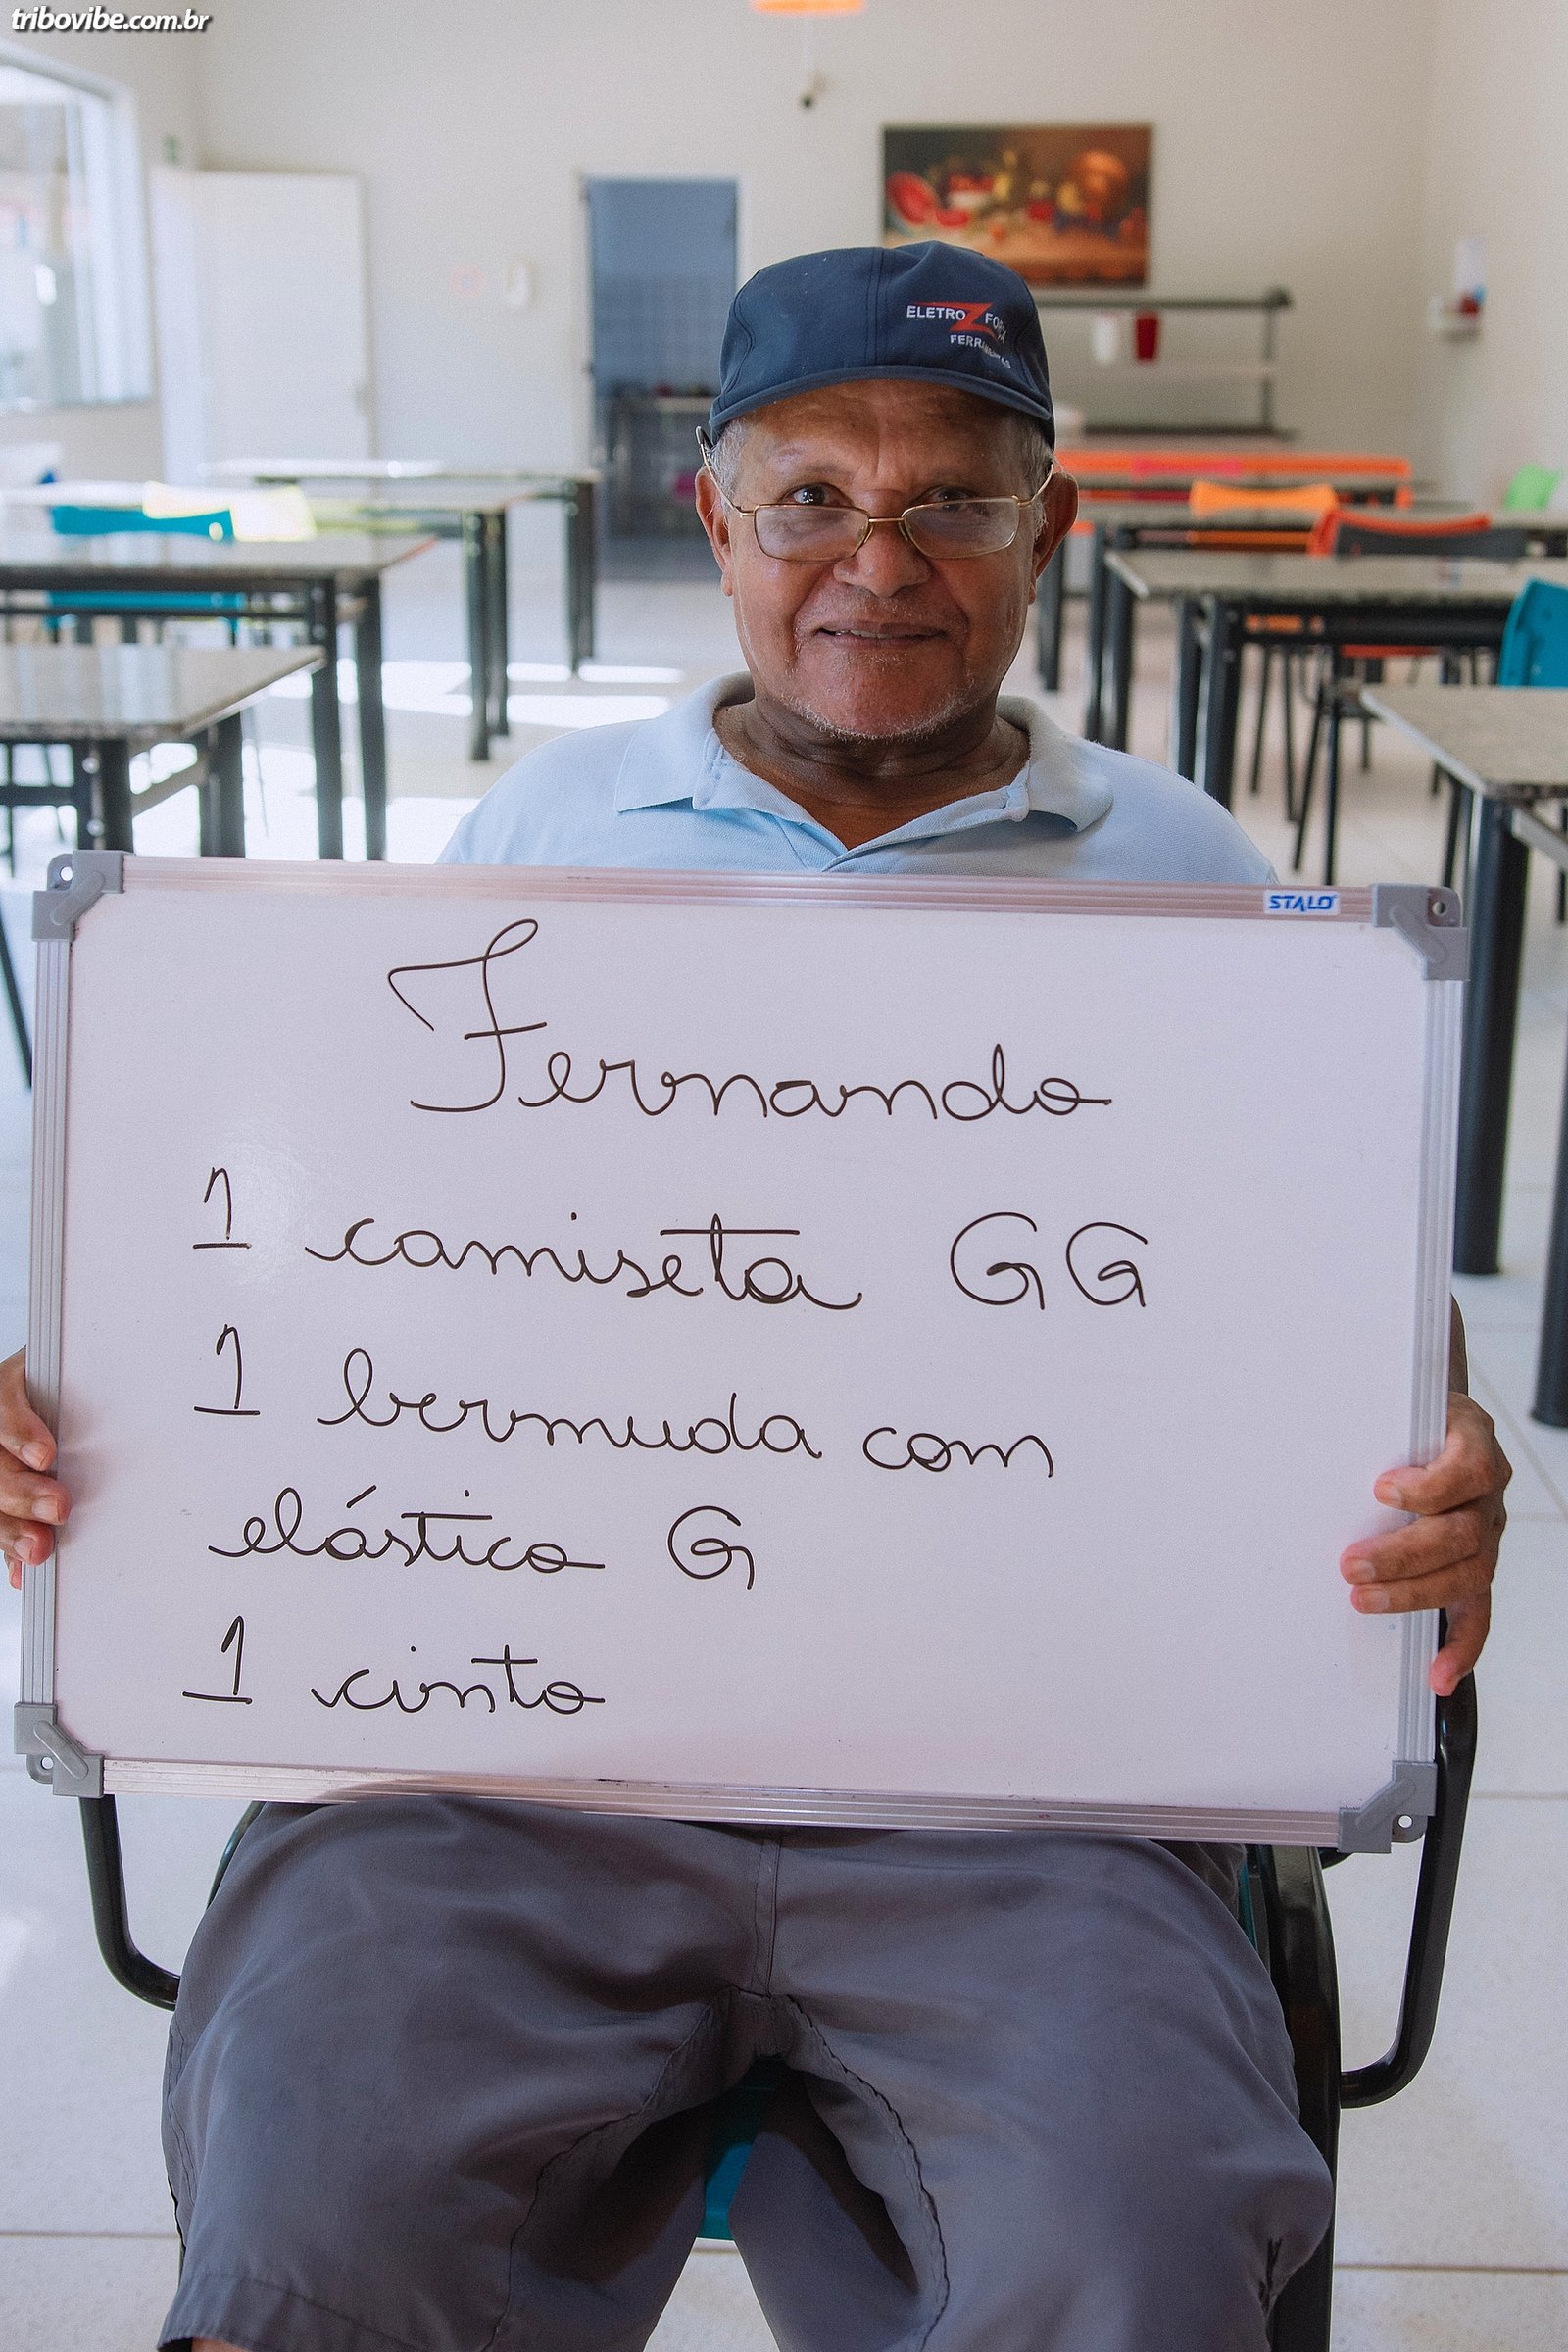 tribovibe.com.br
ELETRO FORÇA
FERRAMENTAS
STALO
Fernando
1 camiseta GG
1 bermuda com
elástico G
1 cinto